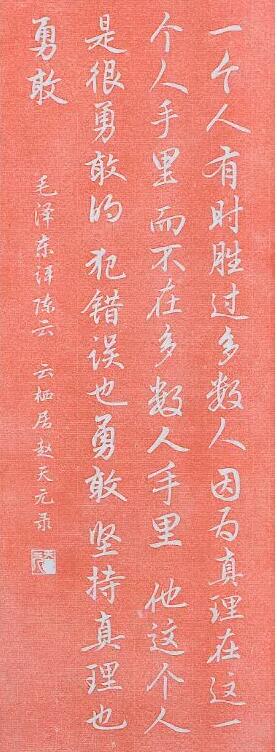 一个人有时胜过多数人因为真理在这一
个人手里而不在多数人手里他这个人
是很勇敢的犯错误也勇敢坚持真理也
勇敢
毛泽东评陈云 云栖居赵天元录